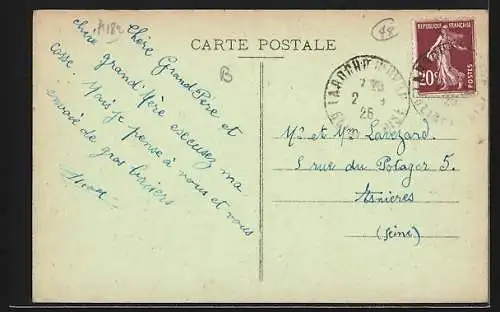 A182
48
CARTE POSTALE
B
REPUBLIQUE FRANÇAISE
20c
POSTES
2
26
Chère Grand Père et
chère grand Mère excusez ma
cosse. Mais je pense à vous et vous
envoie de gros baisers
Mr et Mme Lavezard
5 rue du Potager 5.
Asnieres
(Seine)